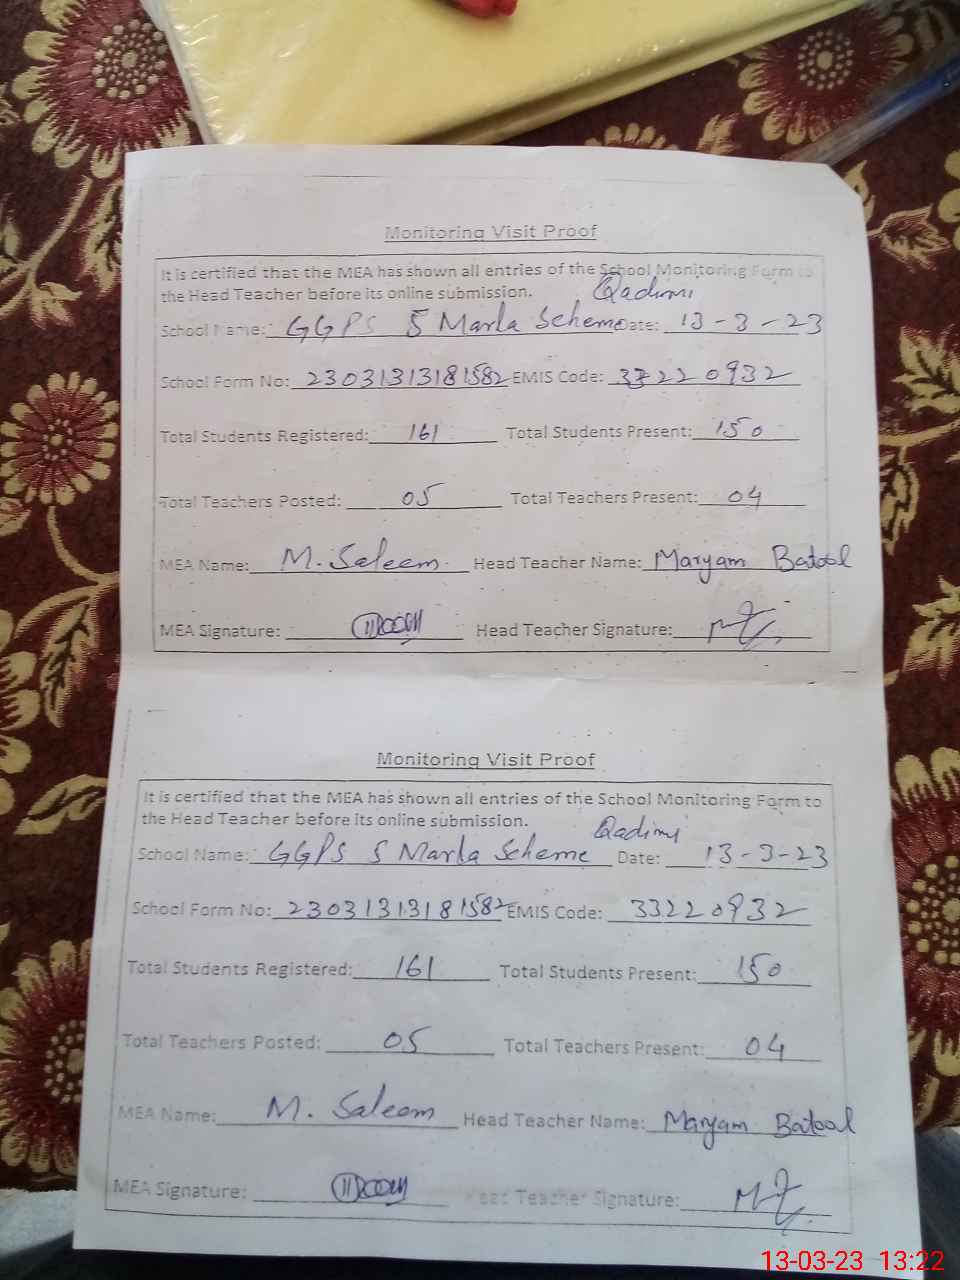 Monitoring Visit Proof
It is certified that the MEA has shown all entries of the School Monitoring Form to
the Head Teacher before its online submission.
Qadimi
School Name: GGPS 5 Marla Scheme Date: 13-3-23
School Form No: 23031313181582 EMIS Code: 33220932
Total Students Registered: 161 Total Students Present: 150
Total Teachers Posted: 05 Total Teachers Present: 04
MEA Name: M. Saleem Head Teacher Name: Maryam Batool
MEA Signature: Head Teacher Signature:
Monitoring Visit Proof
It is certified that the MEA has shown all entries of the School Monitoring Form to
the Head Teacher before its online submission.
Qadimi
School Name: GGPS 5 Marla Scheme Date: 13-3-23
School Form No: 23031313181582 EMIS Code: 33220932
Total Students Registered: 161 Total Students Present: 150
Total Teachers Posted: 05 Total Teachers Present: 04
MEA Name: M. Saleem Head Teacher Name: Maryam Batool
MEA Signature: Head Teacher Signature:
13-03-23 13:22